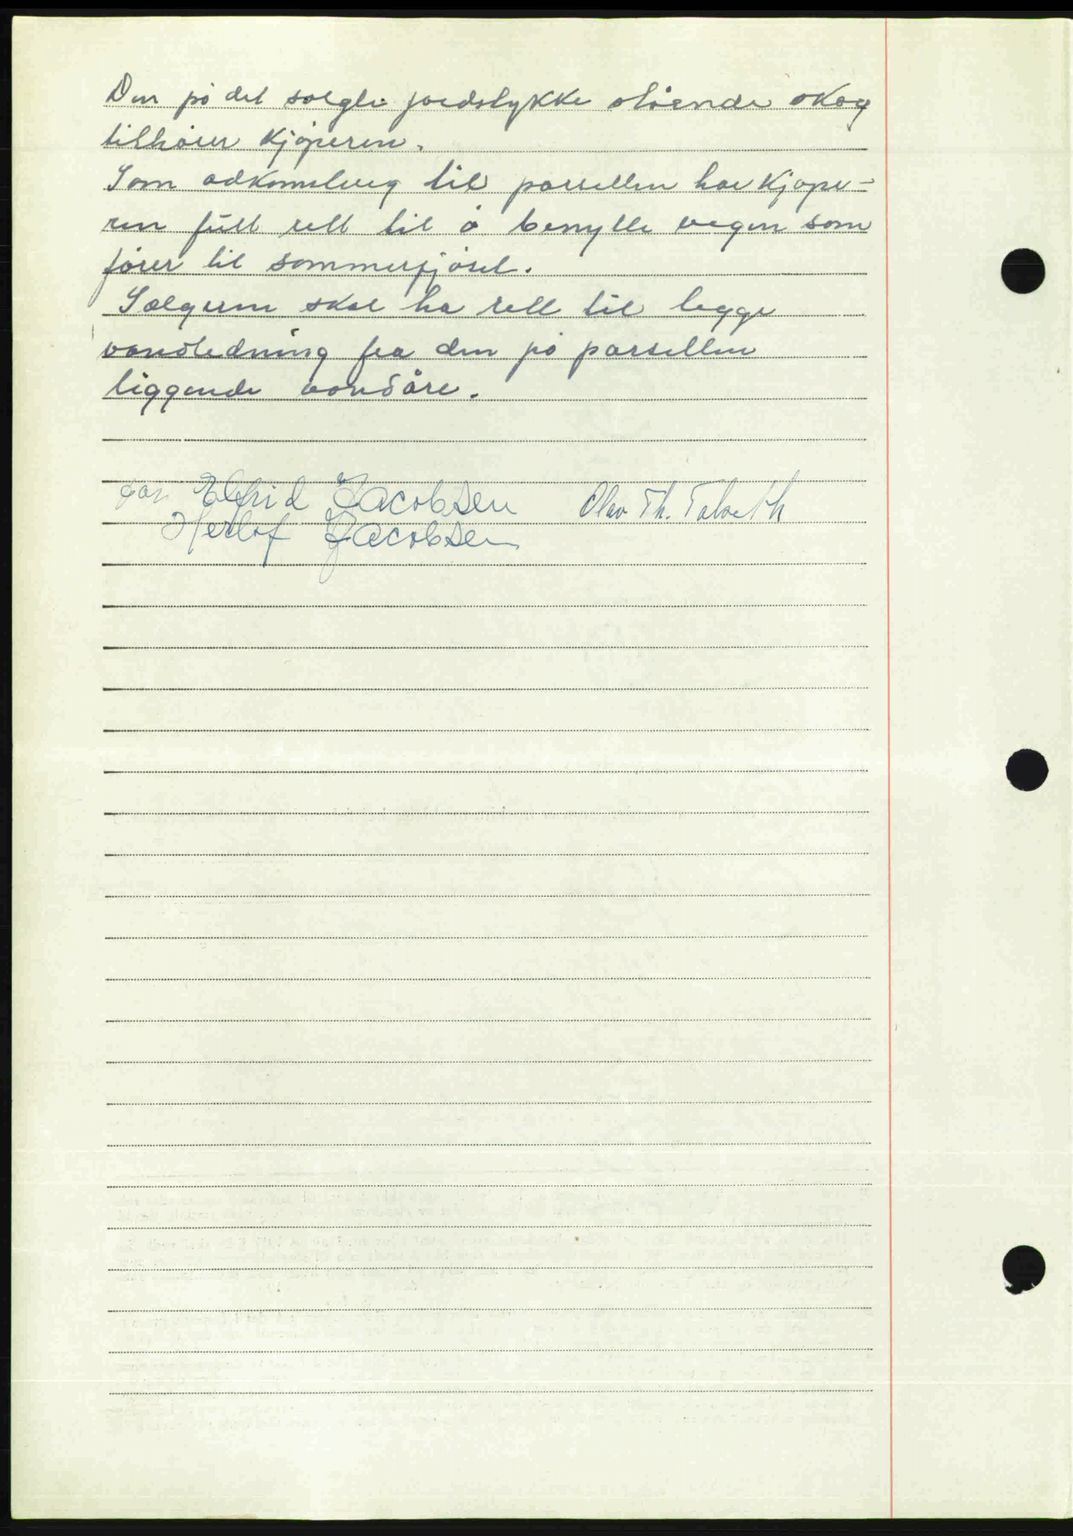 Den på det solgte jordstykke stående skog
tilhører kjøperen.
Som adkomstveg til parsellen har kjøpe-
ren full rett til å benytte vegen som
fører til sommerfjøset.
Selgeren skal ha rett til legge
vandledning fra den på parsellen
liggende vandåre.
for Elfrid Jacobsen Olav Th.
Herlof Jacobsen